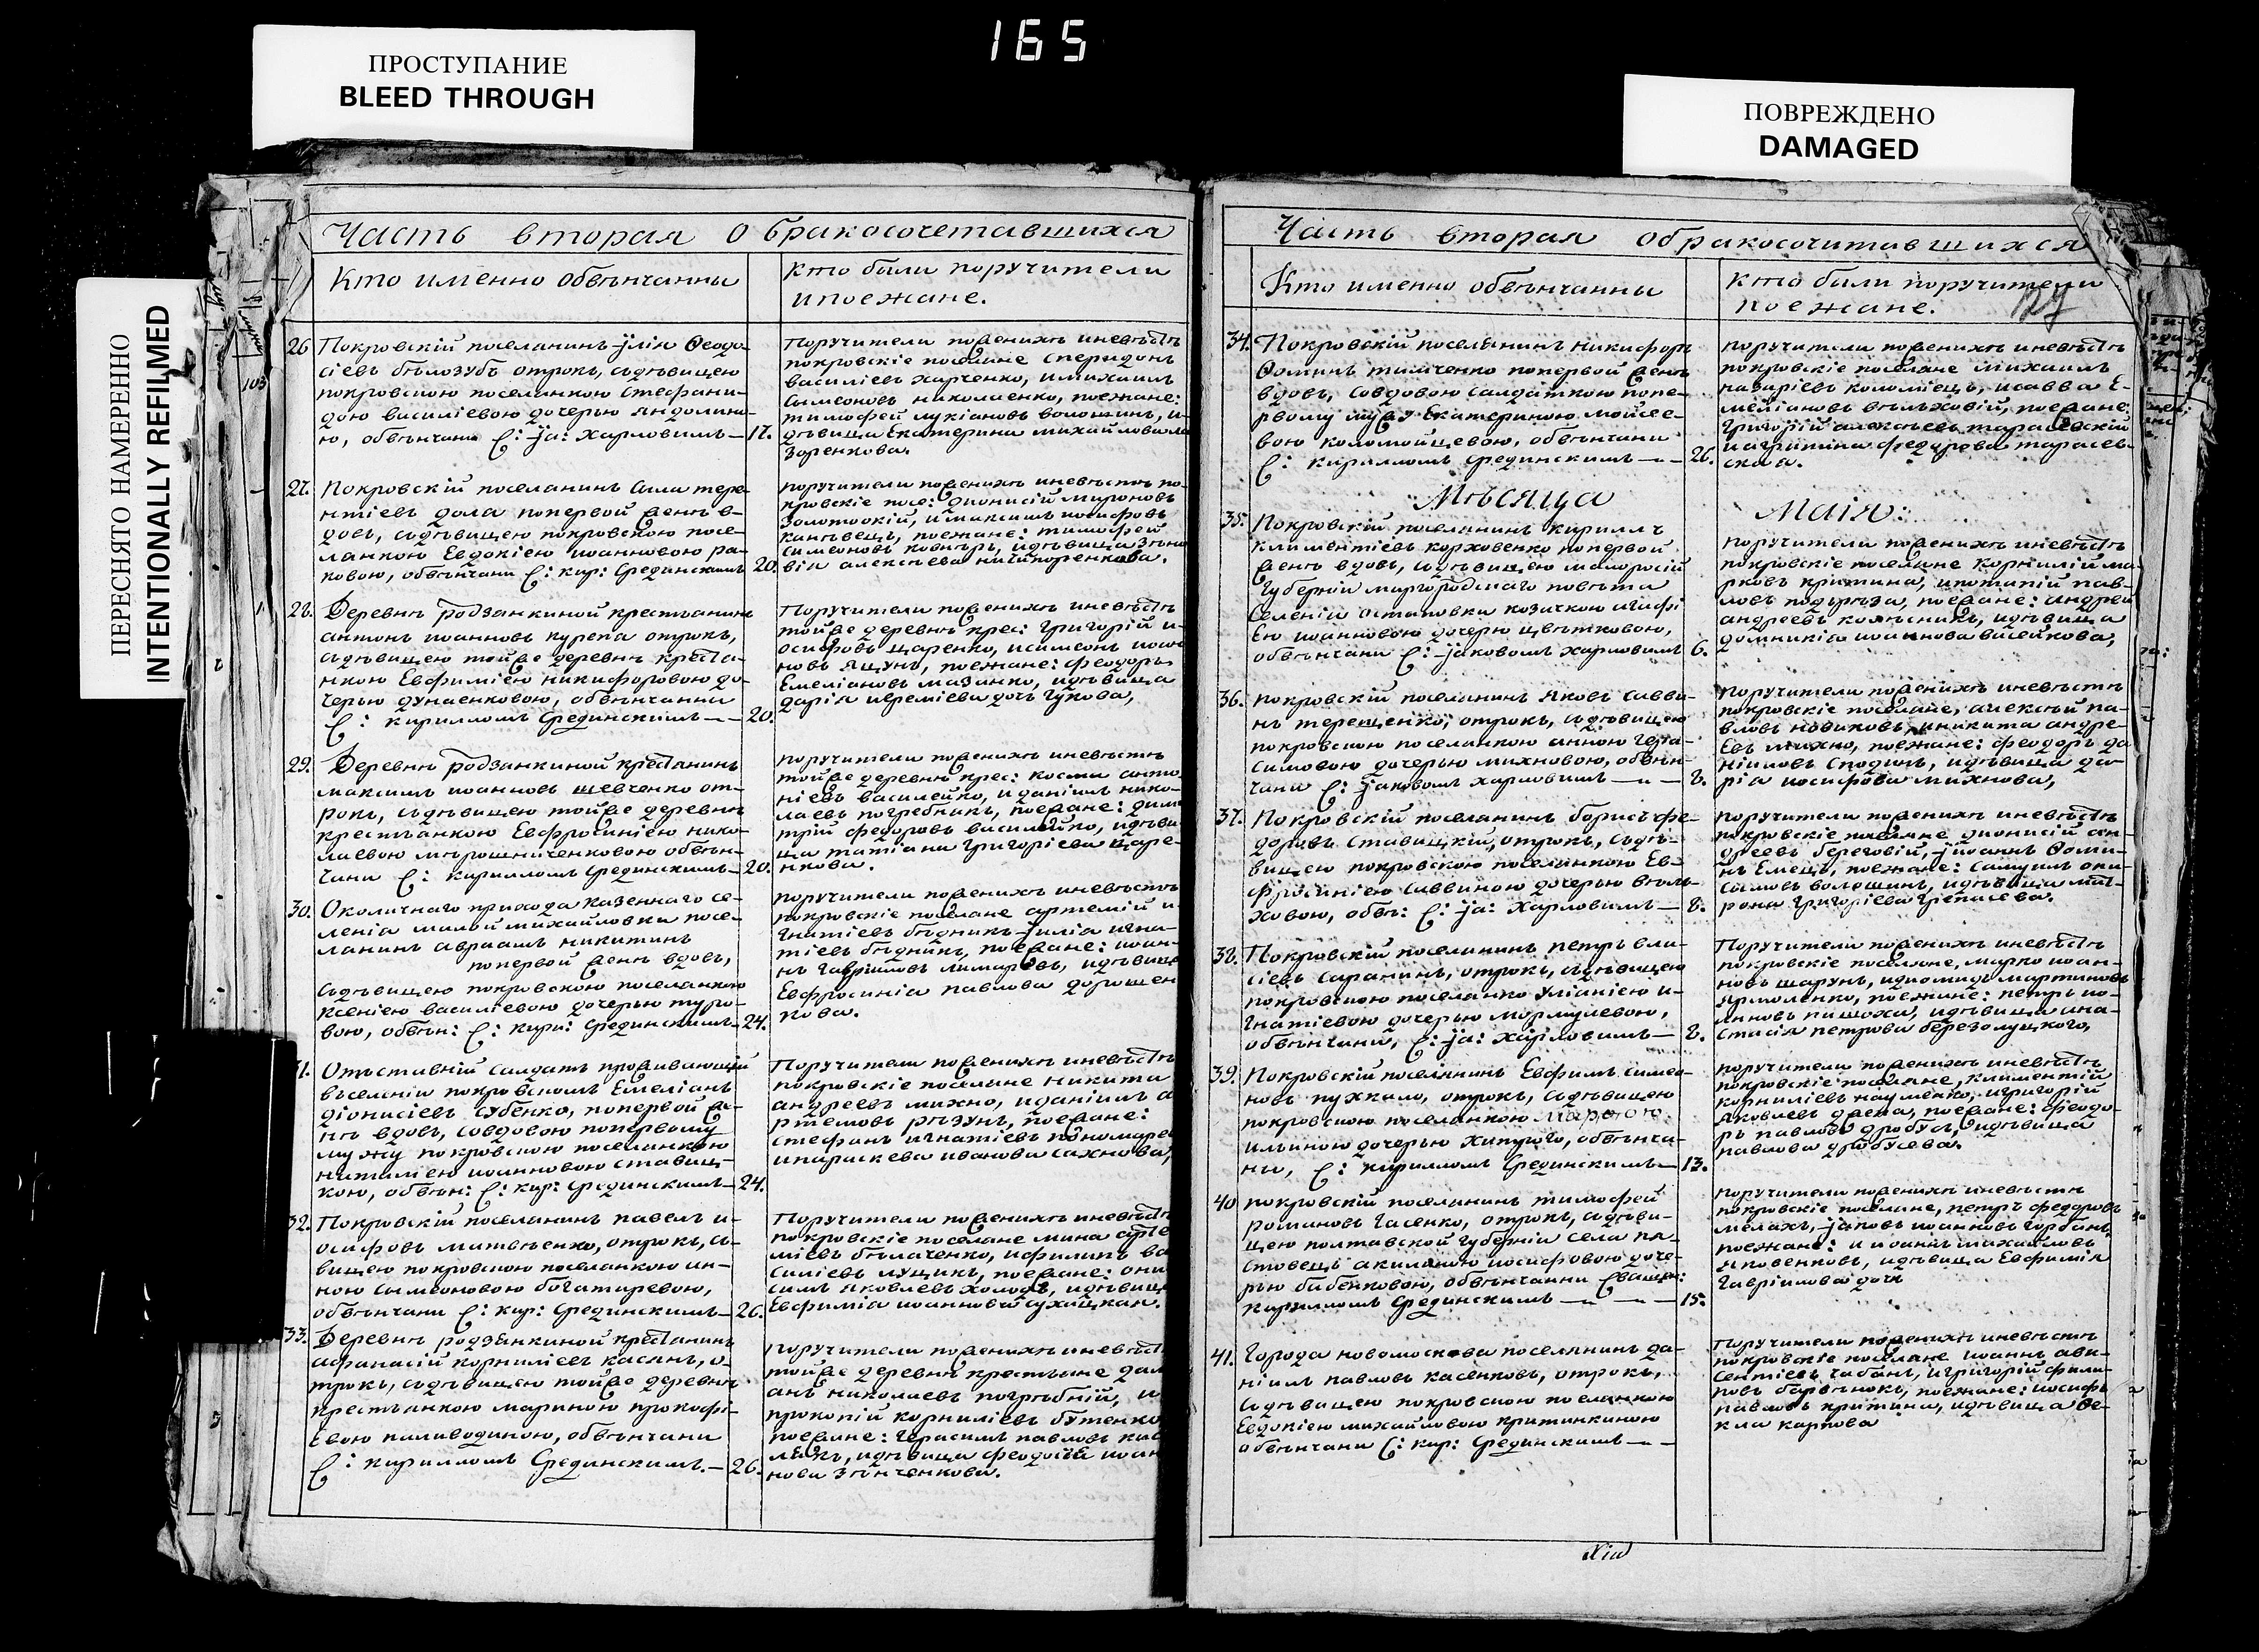 165
ПРОСТУПАНИЕ
BLEED THROUGH
ПОВРЕЖДЕНО
DAMAGED
ПЕРЕСНЯТО НАМЕРЕННО
INTENTIONALLY REFILMED
103
Часть вторая о бракосочетавшихся
Кто именно обвѣнчанны
Кто были поручители
и поежане.
26 Покровскій поселанинъ Іуліи Ѳеодо-
сіевъ бѣлозубъ отрокъ, съдѣвицею
покровскою поселанкою Стефани-
дою василіевою дочерью
обвѣнчани С: Іа: Харловимъ — 17.
Поручители по женихѣ и невѣстѣ
покровскіе поселане Спиридонъ
василіевъ харченко, и михаилъ
Сымеоновъ николаенко, поежане:
тимофей лукіановъ волошинъ, и
дѣвица Екатерина михайлова
Зоренкова.
27. Покровскій поселанинъ Сила тере-
нтіевъ дола по первой женѣ в-
довъ, съдѣвицею покровскою посе-
ланкою Евдокіею иоанновою ра-
ковою, обвѣнчани С: кир: Срединскимъ 20.
поручители по женихѣ и невѣстѣ по-
кровскіе посе: Дионисій мироновъ
и максимъ иосифовъ
канѣвецъ, поежане: тимофей
симеоновъ и дѣвица Зѣно
вія алексѣева ничипоренкова.
28. Деревнѣ родзанкиной крестьанинъ
антонъ иоанновъ курепа отрокъ,
съдѣвицею тойже деревнѣ креста-
нкою Евфиміею никифоровою до-
черью дунаенковою, обвѣнчанни
С: кирилломъ Срединскимъ — 20.
Поручители по женихѣ и невѣстѣ
тойже деревнѣ крес: григорій и-
осифовъ царенко, и симеонъ иоан
новъ Яцунъ, поежане: феодоръ
Емеліановъ мазинко, и дѣвица
дарія иереміева дочь гукова,
29. Деревнѣ родзанкиной крестанинъ
максимъ иоанновъ шевченко от-
рокъ, съдѣвицею тойже деревнѣ
крестьанкою Евфросиніею нико-
лаевою мѣрошниченковою обвѣн-
чани С: кирилломъ Срединскимъ — 20.
поручители по женихѣ и невѣстѣ
тойже деревнѣ крес: косма анто
ніевъ василейко, и даніилъ нико-
лаевъ погребникъ, поежане: дими
трій федоровъ василейко, и дѣви
ца татіана григоріева царе-
нкова.
30. Околичнаго прихода казеннаго се-
ленія малой михайловки посе-
ланинъ авраамъ никитинъ
по первой женѣ вдовъ,
съдѣвицею покровскою поселанкою
ксеніею василіевою дочерью туро-
вою, обвѣн: С: кири: Срединскимъ — 24.
поручители по женихѣ и невѣстѣ
покровскіе поселане артемій и-
гнатіевъ бѣдникъ, иліа игна-
тіевъ бѣдникъ, поежане: иоан-
нъ гавриловъ лимаревъ, и дѣвица
Евфросинія павлова дорошен
кова.
31. Отъставній салдатъ проживающій
въселеніи покровскомъ Емеліанъ
діонисіевъ субенко, по первой же-
нѣ вдовъ, совдовою по первому
мужу покровскою поселанкою
наталіею иоанновою ставиц-
кою, обвѣн: С: кир: Срединскимъ — 24.
Поручители по женихѣ и невѣстѣ
покровскіе поселане никита
андреевъ михно, и даніилъ а
ртемовъ рѣзунъ, поежане:
стефанъ игнатіевъ пономарев
и параскева иванова сахнова,
32. Покровскій поселанинъ павелъ и-
осифовъ матвѣенко, отрокъ, съ-
вицею покровскою поселанкою ан-
ною сымеоновою богатиревою,
обвѣнчани С: кир: Срединскимъ — 26.
Поручители по женихѣ и невѣстѣ
покровскіе поселане мина арте
міевъ бѣлаченко, и филипъ ва
силіевъ луцикъ, поежане: они
симъ Яковлевъ холодъ, и дѣвица
Евфимія иоаннова
33. Деревнѣ родзѣнкиной крестанинъ
афанасій корниліевъ касянъ, о-
трокъ, съдѣвицею тойже деревнѣ
крестьанкою мариною прокофі-
евою паливодиною, обвѣнчани
С: кирилломъ Срединскимъ. — 26.
поручители по женихѣ и невѣстѣ
тойже деревнѣ крестьяне
николаевъ погрѣбній, и
прокопій корниліевъ бутенко
поежане: герасимъ павловъ
и дѣвица феодосія иоан
нова Зѣнченкова.
Часть вторая о бракосочитавшихся
Кто именно обвѣнчанны
Кто были поручители
поежане.
34. Покровскій поселѣнинъ никифоръ
Ѳоминъ тимченко по первой женѣ
вдовъ, Совдовою Салдаткою попе-
рвому мужу Екатериною мойсее-
вою коломойцевою, обвѣнчани
С: кирилломъ Срединскимъ — 26.
поручители по женихѣ и невѣстѣ
покровскіе поселане михаилъ
назаріевъ коломіецъ, и савва Е-
меліановъ вѣлѣховій, поежане:
григорій алексѣевъ тарасевскій
и агрипина федорова тарасев-
скова.
Мѣсяца
Маія:
35. Покровскій поселанинъ кириллъ
климентіевъ корховенко по первой
женѣ вдовъ, съдѣвицею малоросій
губерніи миргородскаго повѣта
Селенія остаповки козачкою агафі
ею иоанновою дочерю цвѣтковою,
обвѣнчани С: Іаковомъ Харловимъ 6.
поручители по женихѣ и невѣстѣ
покровскіе поселане корнилій ма-
рковъ критина, ипотапій пав-
ловъ подърѣза, поежане: андрей
андреевъ колѣсникъ, и дѣвица
домникіа иоаннова висейкова,
36. покровскій поселанинъ Яковъ савви-
нъ терещенко, отрокъ, съдѣвицею
покровскою поселанкою анною гера-
симовою дочерью михновою, обвѣн-
чани С: Іаковомъ Харловимъ — 8.
поручители по женихѣ и невѣстѣ
покровскіе поселане, алексѣй па-
вловъ новиковъ, иникита андре-
евъ михно, поежане: феодоръ да
ніиловъ Сподинъ, и дѣвица да-
рія иосифова михнова,
37. Покровскій поселанинъ борисъ фе-
доровъ Ставицкій, отрокъ, съдѣ-
вицею покровскою поселанкою Ев-
фросиніею Саввиною дочерью вѣлѣ-
ховою, обвѣ: С: Іа: Харловимъ — 8.
поручители по женихѣ и невѣстѣ
покровскіе поселяне дионисій ан-
дреевъ береговій, Іиоаннъ Ѳоми-
нъ Емецъ, поежане: Самуилъ они-
симовъ волошинъ, и дѣвица мат-
рона григоріева
38. Покровскій поселанинъ петръ вла-
сіевъ Саранинъ, отрокъ, съдѣвицею
покровскою поселанко Уліаніею и-
гнатіевою дочерью мормулевою,
обвѣнчани, С: Іа: Харловимъ — 8.
Поручители по женихѣ и невѣстѣ
покровскіе поселяне, марко иоан-
новъ шарунъ, идиомидъ мартиновъ
Ярмоленко, поежане: петръ ио-
анновъ и дѣвица ана-
стасія петрова березолуцкого,
39. Покровскій поселянинъ Евфимъ симео-
новъ пухкало, отрокъ, съдѣвицею
покровскою поселанкою марфою
ильиною дочерью хитрого, обвѣнча-
ни, С: кирилломъ Срединскимъ — 13.
поручители по женихѣ и невѣстѣ
покровскіе поселяне, климентій
корниліевъ науменко, игригорій
Яковлевъ дрепа, поежане: феодо-
ръ павловъ дробусъ, и дѣвица
павлова дробусева.
40 покровскій поселанинъ тимофей
романовъ гасенко, отрокъ, съдѣви-
цею полтавской губерніи села пя-
стовецъ акилиною иосифовою доче-
рью бабенковою, обвѣнчанни Священ:
кирилломъ Срединскимъ — 15.
поручители по женихѣ и невѣстѣ
покровскіе поселяне, петръ федоровъ
Іаковъ иоанновъ горбань,
поежане: и иоаннъ михайловъ
Яковенковъ, и дѣвица Евфимія
гавріилова дочь
41. Города новомосковска поселянинъ да-
ніилъ павловъ касенковъ, отрокъ,
съдѣвицею покровскою поселанкою
Евдокіею михайловою критинкиною
обвѣнчани С: кир: Срединскимъ —
Поручители по женихѣ и невѣстѣ
покровскіе поселане иоаннъ ави-
сентіевъ чабанъ, игригорій фили-
повъ барвѣнокъ, поежане: иосифъ
павловъ критина, и дѣвица Ѳе-
кла карпова